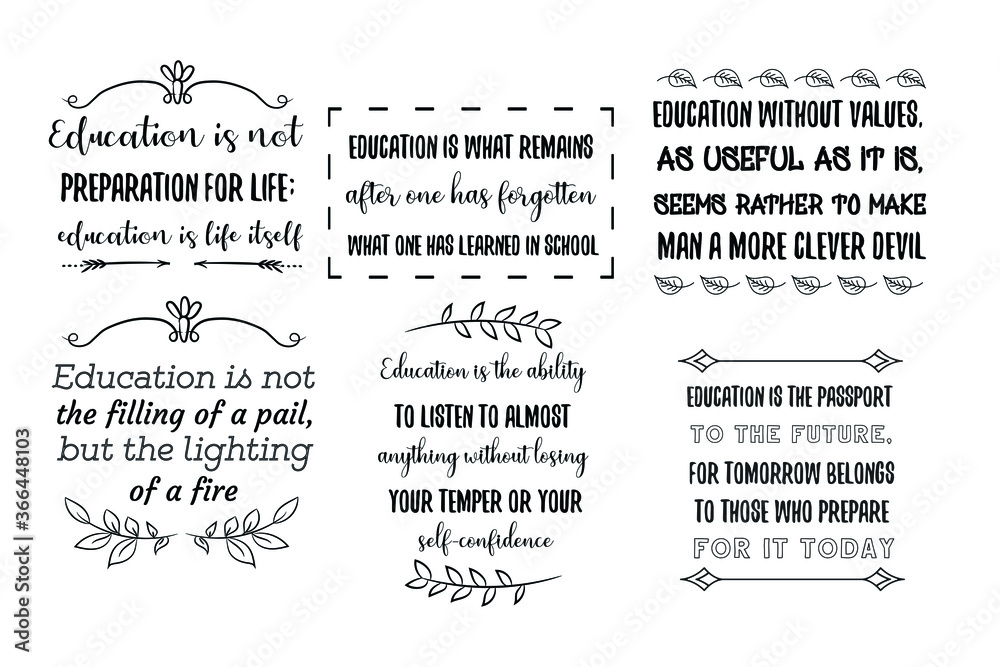 Education is not
PREPARATION FOR LIFE;
education is life itself
EDUCATION IS WHAT REMAINS
after one has forgotten
WHAT ONE HAS LEARNED IN SCHOOL
EDUCATION WITHOUT VALUES,
AS USEFUL AS IT IS,
SEEMS RATHER TO MAKE
MAN A MORE CLEVER DEVIL
Education is not
the filling of a pail,
but the lighting
of a fire
Education is the ability
TO LISTEN TO ALMOST
anything without losing
YOUR TEMPER OR YOUR
self-confidence
EDUCATION IS THE PASSPORT
TO THE FUTURE,
FOR TOMORROW BELONGS
TO THOSE WHO PREPARE
FOR IT TODAY
Adobe Stock | #366448103